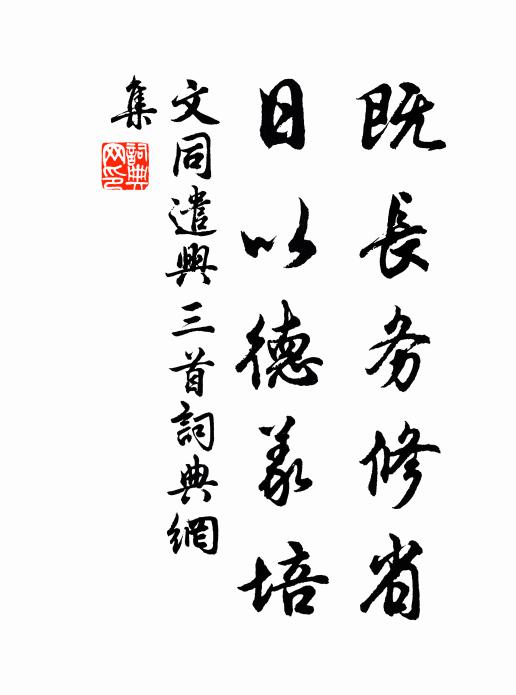 既長务修省
日以德义培
文同遣興三首詞典網
集
詞典
网印